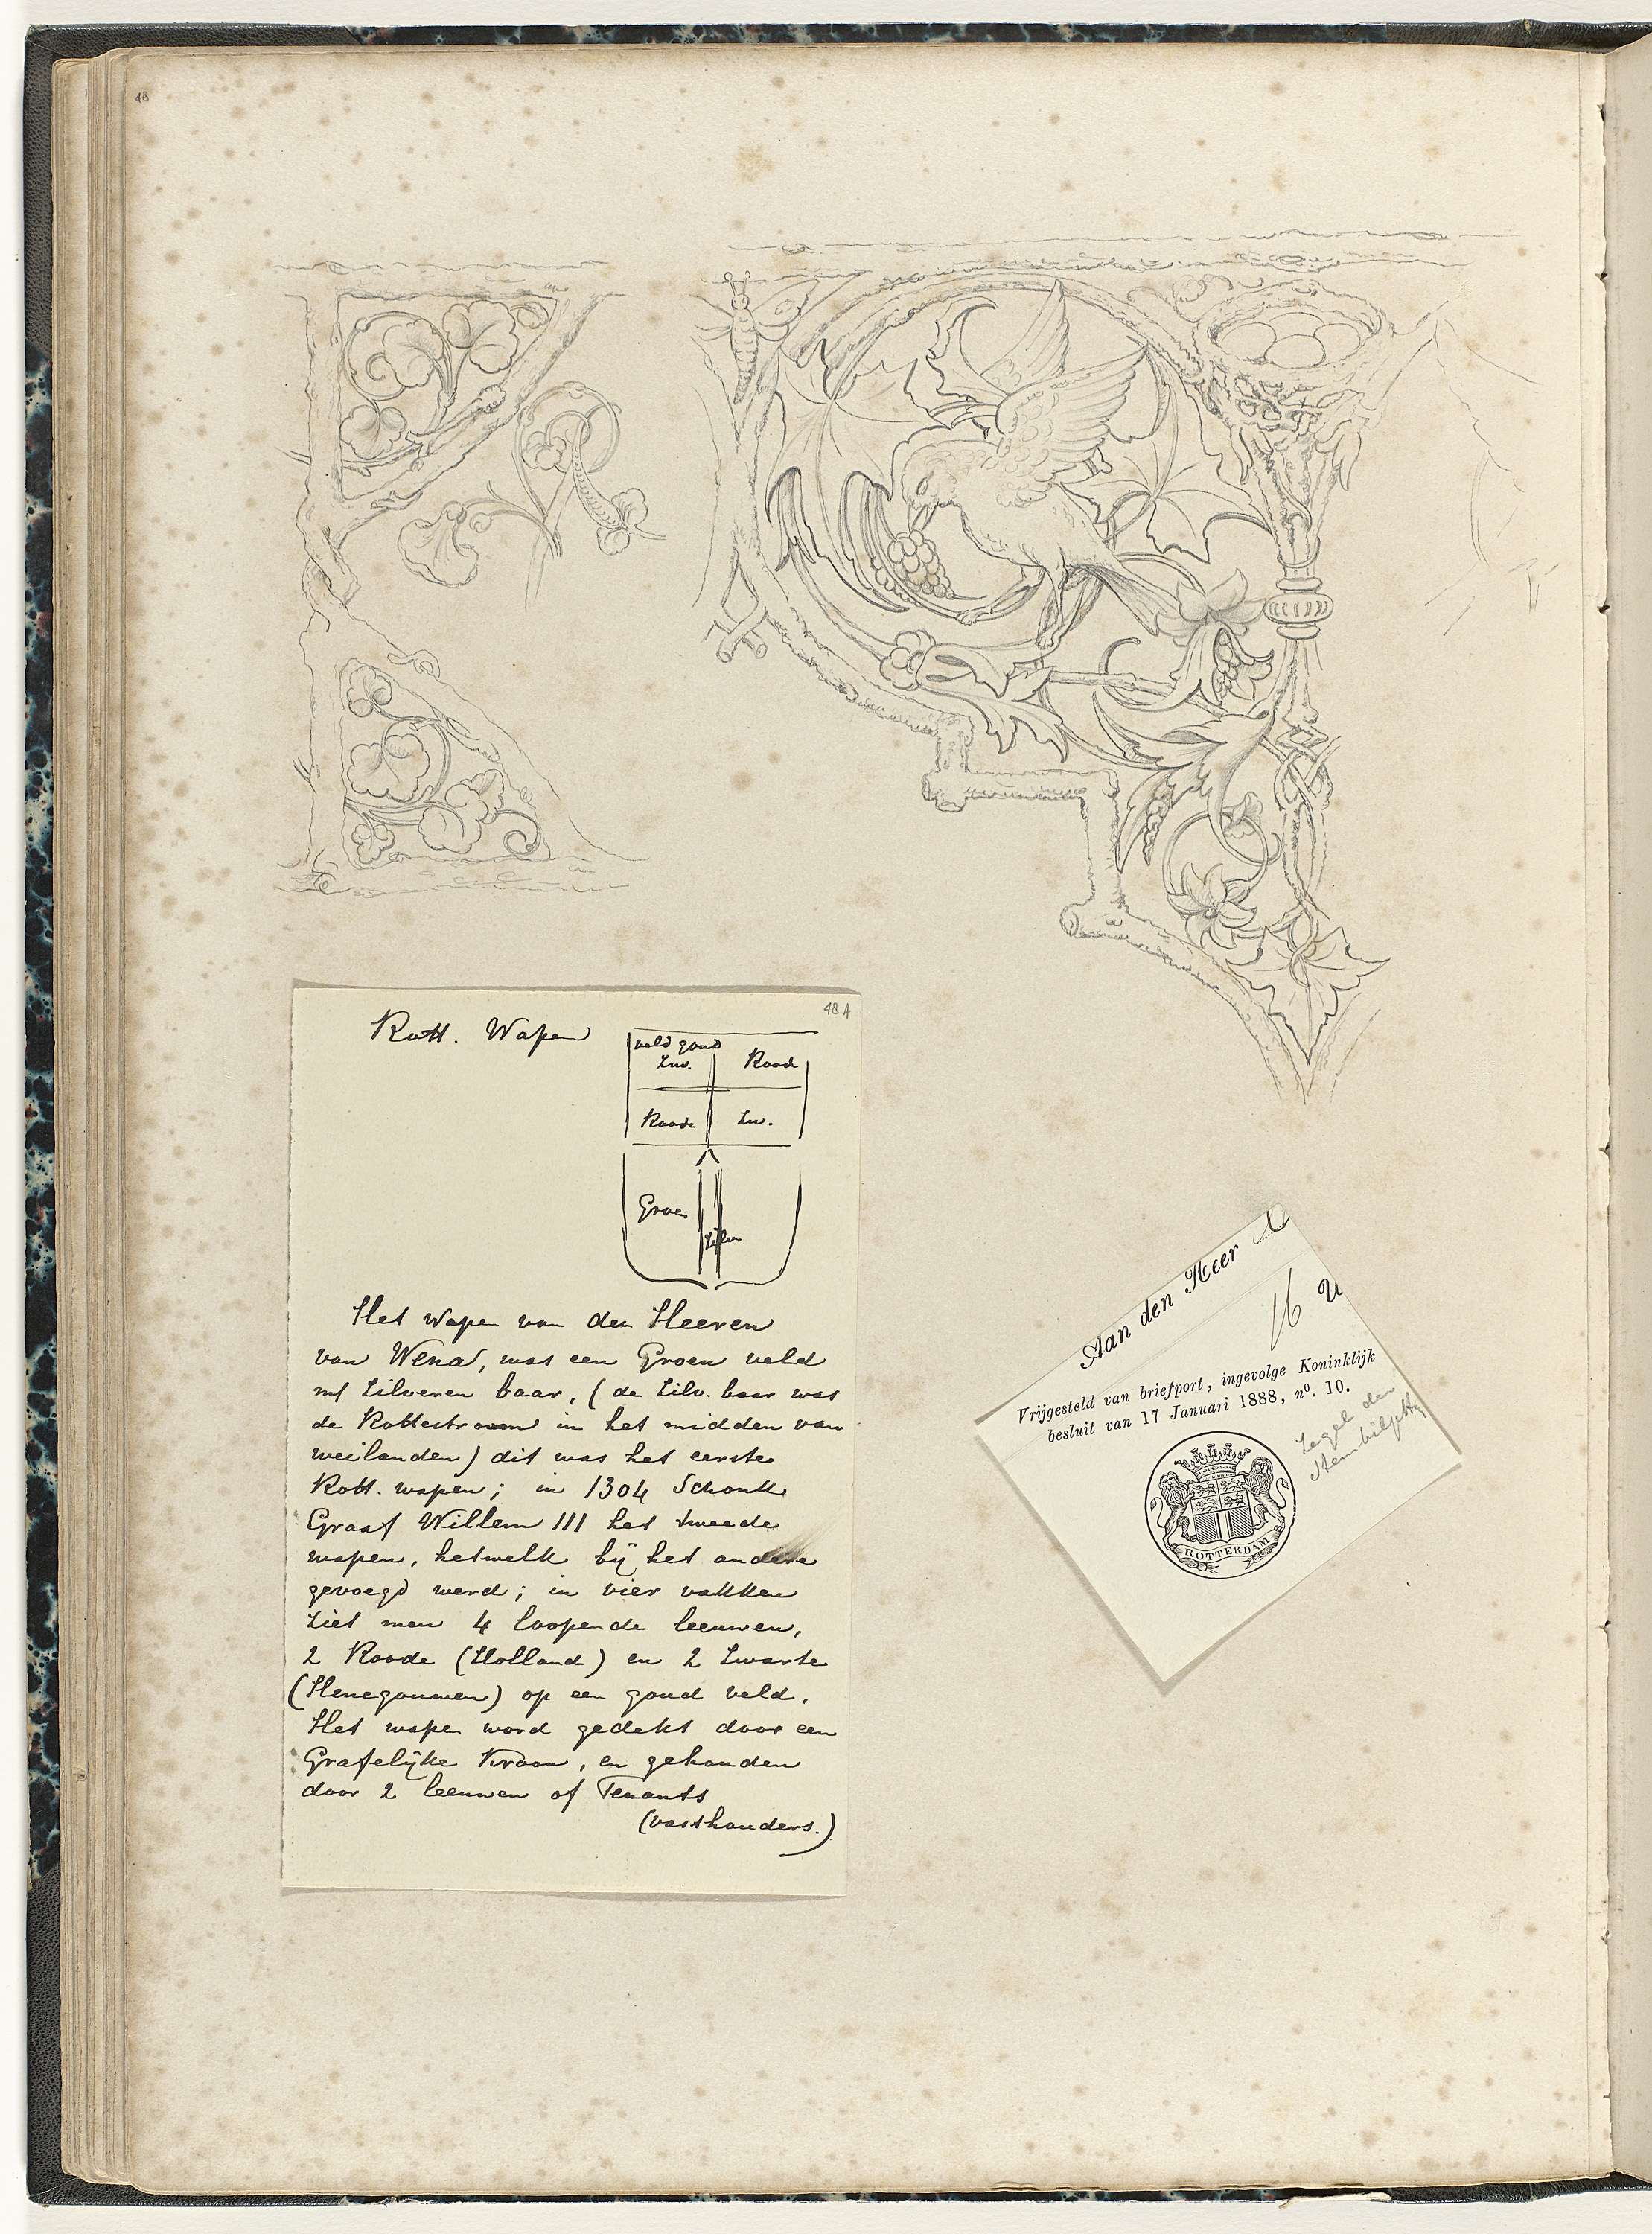 48
48A
Rott. Wapen
veld goud
Zw.
Roode
Roode
Zw.
Groen
Zilv
Het wapen van den Heeren
van Wena, was een Groen veld
mt Zilveren baar, (de Zilv. baar was
de Rottestroom in het midden van
weilanden) dit was het eerste
Rott. wapen; in 1304 Schonk
Graaf Willem III het tweede
wapen, hetwelk bij het andere
gevoegd werd; in vier vakken
ziet men 4 loopende leeuwen,
2 Roode (Holland) en 2 Zwarte
(Henegouwen) op een goud veld.
Het wapen word gedekt door een
Grafelijke Kroon, en gehouden
door 2 leeuwen of Tenants
(vasthouders.)
Aan den Heer
16 u
Vrijgesteld van briefport, ingevolge Koninklijk
besluit van 17 Januari 1888, nº. 10.
Zegel der
Stembiljetten
ROTTERDAM